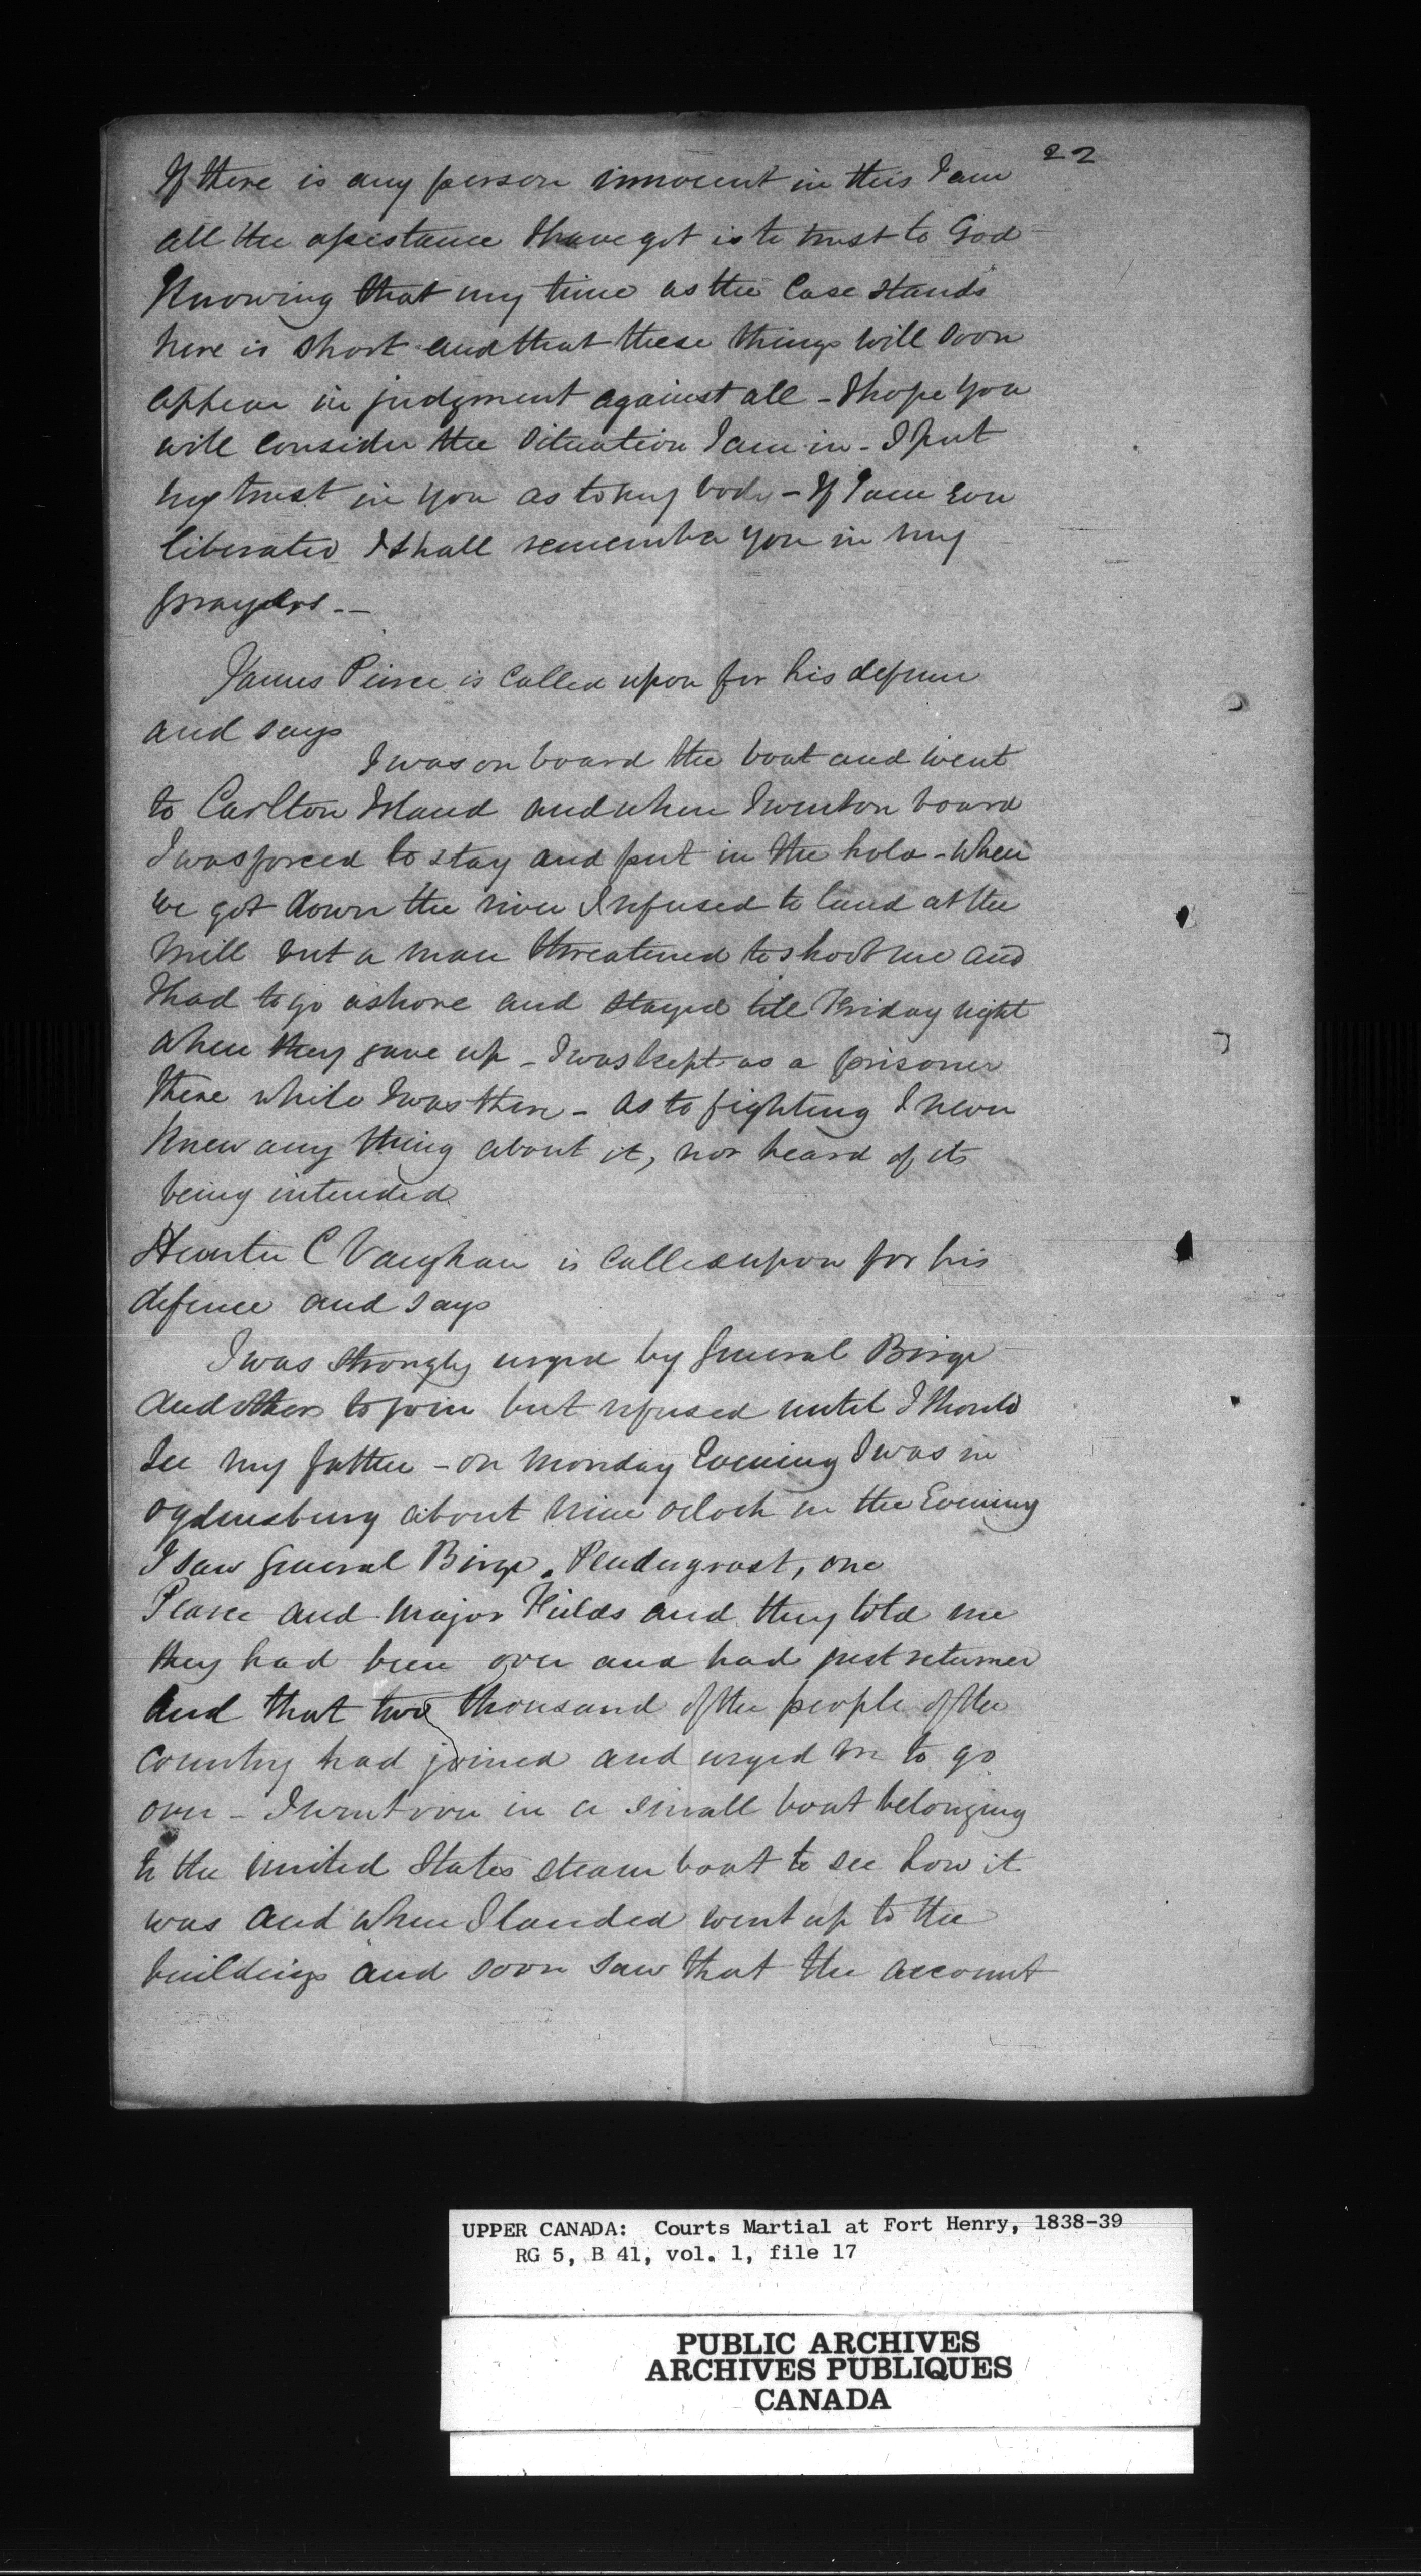 22
If there is any person innocent in this I am
all the assistance I have got is to trust to God
Knowing that my time as the Case stands
here is short and that these things will soon
appear in judgment against all - I hope you
will consider the situation I am in - I put
my trust in you as to my body - If I am ever
liberated I shall remember you in my
prayers --
James Pierce is called upon for his defence
and says
I was on board the boat and went
to Carlton Island and when I went on board
I was forced to stay and put in the hold - when
we got down the river I refused to land at the
mill but a man threatened to shoot me and
I had to go ashore and stayed till Friday night
when they gave up - I was kept as a prisoner
there while I was there - as to fighting I never
knew any thing about it, nor heard of its
being intended
Hunter C Vaughan is called upon for his
defence and says
I was strongly urged by General Birge
and others to join but refused until I should
see my father - on Monday Evening I was in
Ogdensburg about nine oclock in the Evening
I saw General Birge, Pendergrast, one
Pearce and Major Fields and they told me
they had been over and had just returned
and that two thousand of the people of the
country had joined and urged me to go
over - I went over in a small boat belonging
to the United States steam boat to see how it
was and when I landed went up to the
buildings and soon saw that the account
UPPER CANADA: Courts Martial at Fort Henry, 1838-39
RG 5, B 41, vol. 1, file 17
PUBLIC ARCHIVES
ARCHIVES PUBLIQUES
CANADA